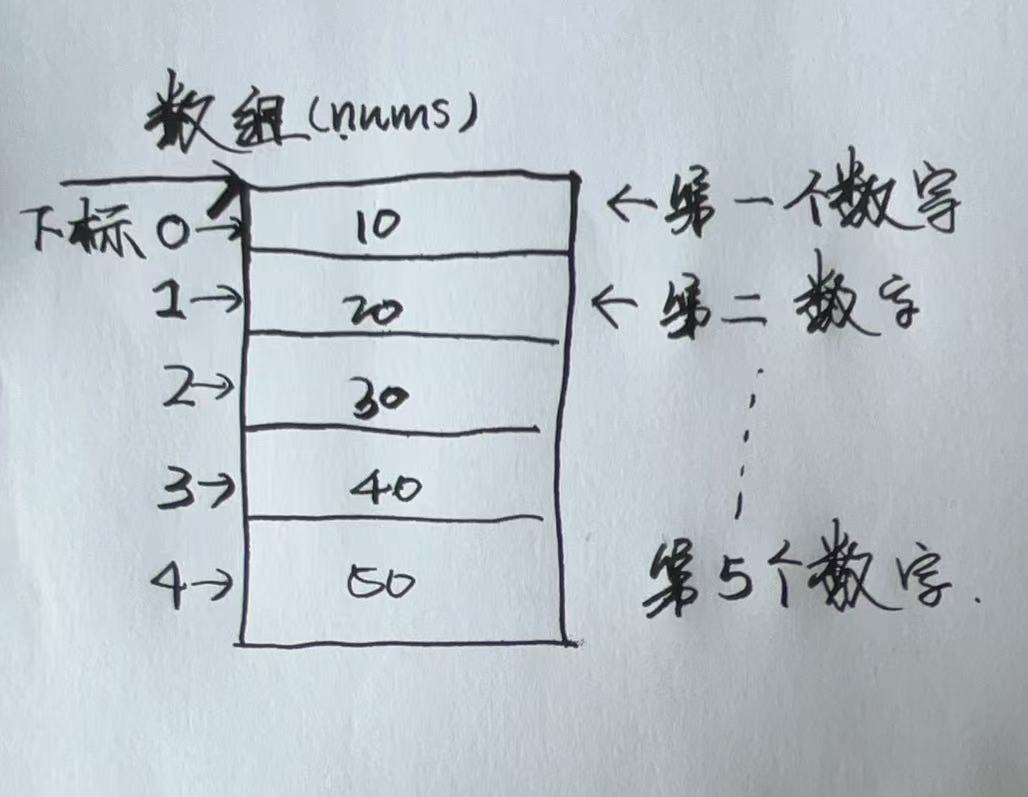 数组(nums)
下标 0→ 10 ←第一个数字
1→ 20 ←第二数字
2→ 30
3→ 40
4→ 50 第5个数字.